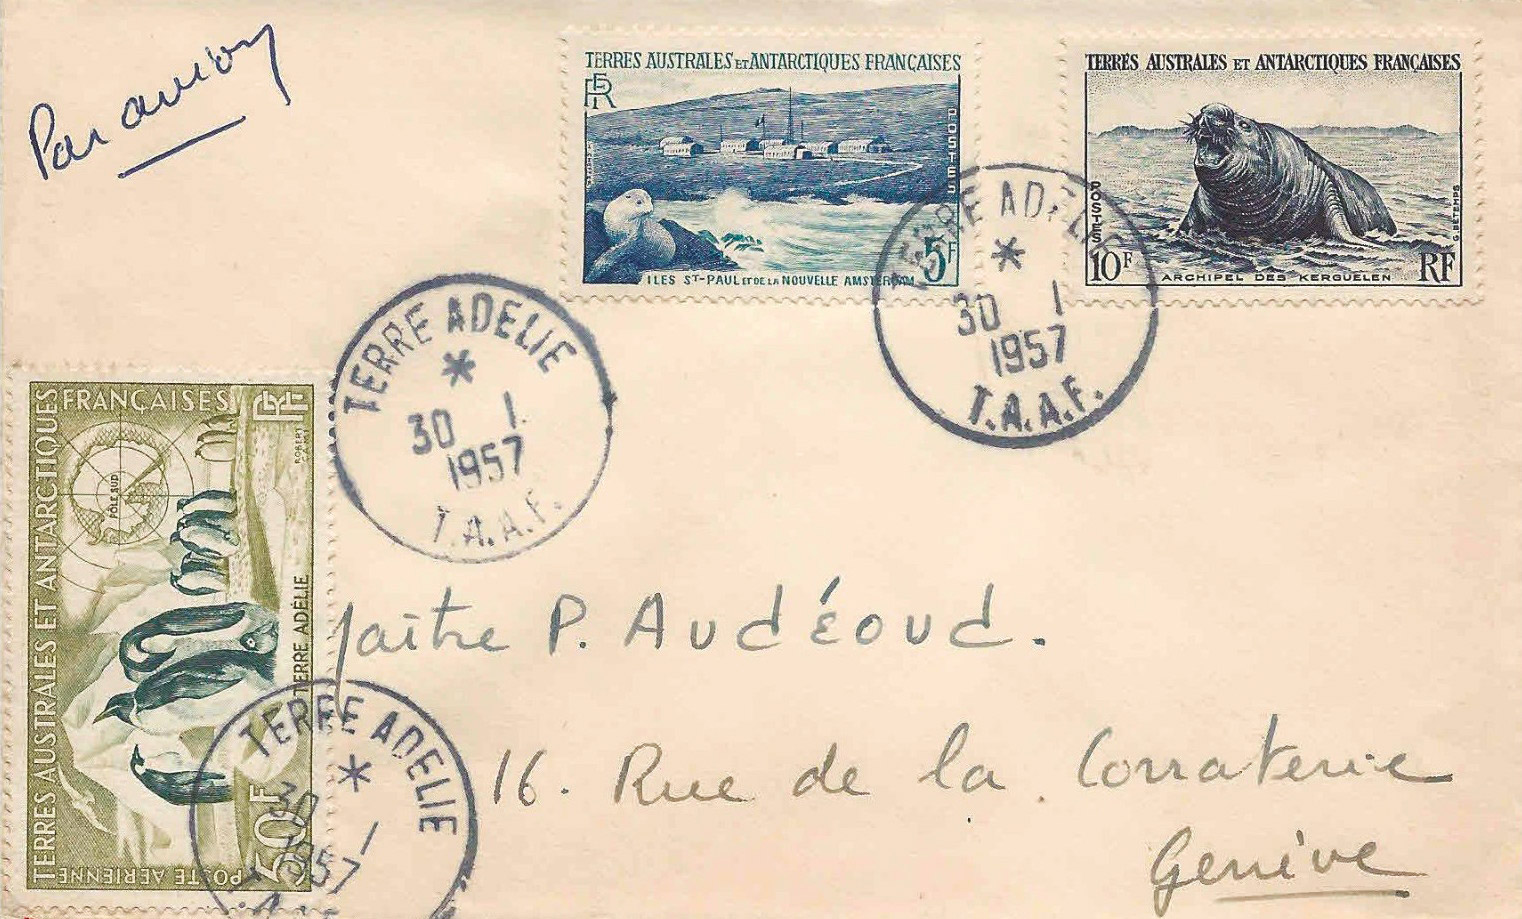 Par avion
TERRES AUSTRALES ET ANTARCTIQUES FRANÇAISES
RF
POSTES
ILES ST-PAUL ET DE LA NOUVELLE AMSTERDAM
5F
TERRES AUSTRALES ET ANTARCTIQUES FRANÇAISES
POSTES
G.BETEMPS
10F
ARCHIPEL DES KERGUELEN
RF
TERRE ADELIE
30 1
1957
T.A.A.F.
TERRE ADELIE
30 1.
1957
T.A.A.F.
TERRES AUSTRALES ET ANTARCTIQUES
FRANÇAISES
RF
PÔLE SUD
TERRE ADÉLIE
50F
POSTE AÉRIENNE
TERRE ADELIE
30 1
1957
Maître P. Audéoud.
16. Rue de la Corraterie
Genève